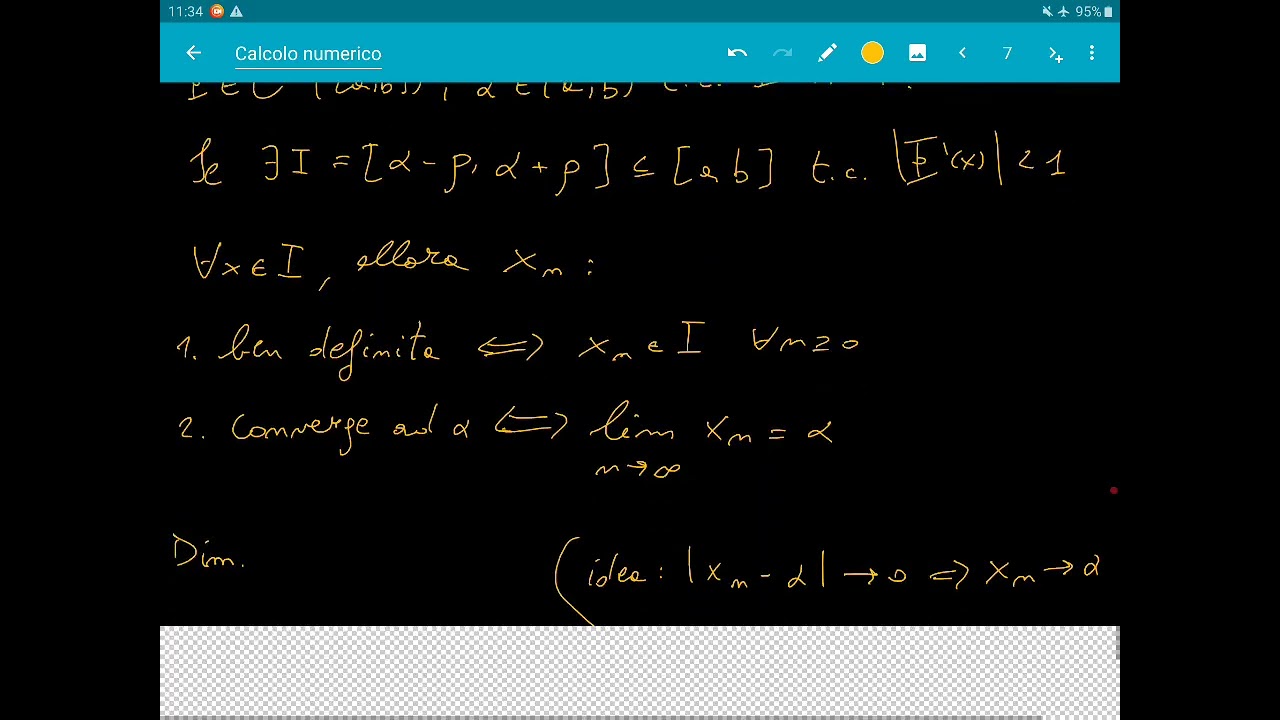 11:34 95%
Calcolo numerico 7
Se ∃ I = [α - ρ, α + ρ] ⊆ [a b] t.c. |Φ'(x)| < 1
∀x ∈ I, allora xₙ :
1. ben definita ⟺ xₙ ∈ I ∀n ≥ 0
2. converge ad α ⟺ lim xₙ = α
n → ∞
Dim. (idea: |xₙ - α| → 0 ⟺ xₙ → α